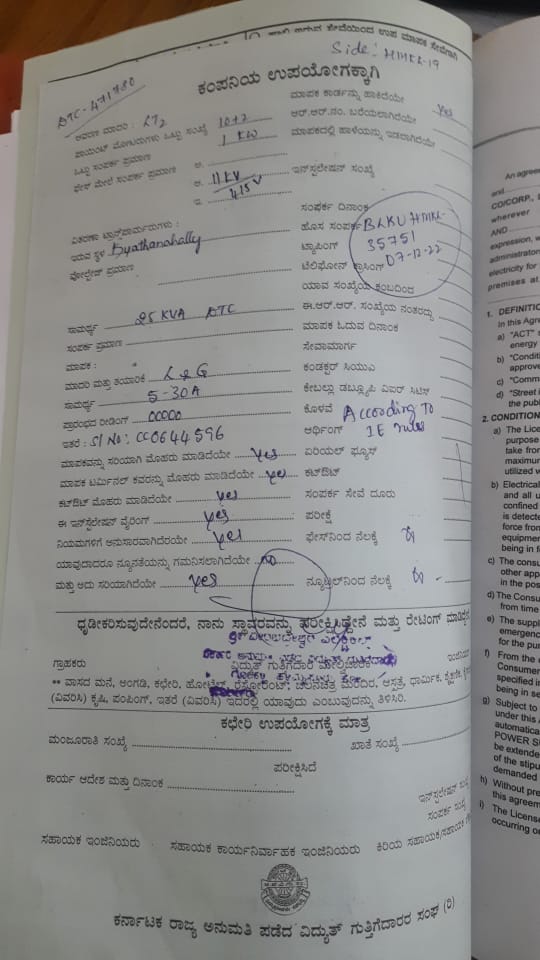 ಹಾಕಿ ಇರುವ ಸೇವೆಯಿಂದ ಉಪ ಮಾಪಕ ಸೇವೆಗಾಗಿ
Side: HMKR-19
DTC-471780
ಕಂಪನಿಯ ಉಪಯೋಗಕ್ಕಾಗಿ
ಮಾಪಕ ಕಾರ್ಡನ್ನು ಹಾಕಿದೆಯೇ Yes
ಆವರಣ ಮಾದರಿ: LT2
ಆರ್.ಆರ್.ನಂ. ಬರೆಯಲಾಗಿದೆಯೇ
ಪಾಯಿಂಟ್ ಮೋಟರುಗಳು ಒಟ್ಟು ಸಂಖ್ಯೆ 10+2
ಮಾಪಕದಲ್ಲಿ ಹಾಳೆಯನ್ನು ಇಡಲಾಗಿದೆಯೇ
ಒಟ್ಟು ಸಂಪರ್ಕ ಪ್ರಮಾಣ 1 KW
ಫೇಸ್ ಮೇಲೆ ಸಂಪರ್ಕ ಪ್ರಮಾಣ ಅ.
ಆ. 11 KV ಇನ್‌ಸ್ಟಲೇಷನ್ ಸಂಖ್ಯೆ
ಇ. 415V
ಸಂಪರ್ಕ ದಿನಾಂಕ
ವಿತರಣಾ ಟ್ರಾನ್ಸ್‌ಫಾರ್ಮರುಗಳು :
ಹೊಸ ಸಂಪರ್ಕ
ಇರುವ ಸ್ಥಳ Byathanahally
ಟ್ಯಾಪಿಂಗ್ 35751
ವೋಲ್ಟೇಜ್ ಪ್ರಮಾಣ
ಟೆಲಿಫೋನ್ ಕ್ರಾಸಿಂಗ್ 07-12-22
ಯಾವ ಸಂಖ್ಯೆಯ ಕಂಬದಿಂದ
ಸಾಮರ್ಥ್ಯ 25 KVA DTC
ಈ.ಆರ್.ಆರ್. ಸಂಖ್ಯೆಯ ನಂತರದ್ದು
ಸಂಪರ್ಕ ಪ್ರಮಾಣ
ಮಾಪಕ ಓದುವ ದಿನಾಂಕ
ಮಾಪಕ :
ಸೇವಾಮಾರ್ಗ
ಮಾದರಿ ಮತ್ತು ತಯಾರಿಕೆ L & G
ಕಂಡಕ್ಟರ್ ಸಿಯುಎ
ಸಾಮರ್ಥ್ಯ 5-30A
ಕೇಬಲ್ಲು ಡಬ್ಲ್ಯೂಪಿ ವಿಐರ್
ಪ್ರಾರಂಭದ ರೀಡಿಂಗ್ 00000
ಕೊಳವೆ According To
ಇತರೆ : Sl No: CC0644596
ಅರ್ಥಿಂಗ್ IE rules
ಮಾಪಕವನ್ನು ಸರಿಯಾಗಿ ಮೊಹರು ಮಾಡಿದೆಯೇ yes
ಏರಿಯಲ್ ಫ್ಯೂಸ್
ಮಾಪಕ ಟರ್ಮಿನಲ್ ಕವರನ್ನು ಮೊಹರು ಮಾಡಿದೆಯೇ yes
ಕಟ್‌ಔಟ್
ಕಟ್‌ಔಟ್ ಮೊಹರು ಮಾಡಿದೆಯೇ yes
ಸಂಪರ್ಕ ಸೇವೆ ದೂರು
ಈ ಇನ್‌ಸ್ಟಲೇಷನ್ ವೈರಿಂಗ್ yes
ಪರೀಕ್ಷೆ
ನಿಯಮಗಳಿಗೆ ಅನುಸಾರವಾಗಿದೆಯೇ yes
ಫೇಸ್‌ನಿಂದ ನೆಲಕ್ಕೆ
ಯಾವುದಾದರೂ ನ್ಯೂನತೆಯನ್ನು ಗಮನಿಸಲಾಗಿದೆಯೇ no
ಮತ್ತು ಅದು ಸರಿಯಾಗಿದೆಯೇ yes
ನ್ಯೂಟ್ರಲ್‌ನಿಂದ ನೆಲಕ್ಕೆ
ಧೃಡೀಕರಿಸುವುದೇನೆಂದರೆ, ನಾನು ಸ್ಥಾವರವನ್ನು ಪರೀಕ್ಷಿಸಿದ್ದೇನೆ ಮತ್ತು ರೇಟಿಂಗ್
ಗ್ರಾಹಕರು
ವಿದ್ಯುತ್ ಗುತ್ತಿಗೆದಾರ ಮೇಲ್ವಿಚಾರಕ
** ವಾಸದ ಮನೆ, ಅಂಗಡಿ, ಕಛೇರಿ, ಹೋಟೆಲ್, ರೆಸ್ಟೋರೆಂಟ್, ಚಲನಚಿತ್ರ ಮಂದಿರ, ಆಸ್ಪತ್ರೆ, ಧಾರ್ಮಿಕ,
(ವಿವರಿಸಿ) ಕೃಷಿ, ಪಂಪಿಂಗ್, ಇತರೆ (ವಿವರಿಸಿ) ಇದರಲ್ಲಿ ಯಾವುದು ಎಂಬುವುದನ್ನು ತಿಳಿಸಿರಿ.
ಕಛೇರಿ ಉಪಯೋಗಕ್ಕೆ ಮಾತ್ರ
ಮಂಜೂರಾತಿ ಸಂಖ್ಯೆ
ಖಾತೆ ಸಂಖ್ಯೆ
ಪರೀಕ್ಷಿಸಿದೆ
ಕಾರ್ಯ ಆದೇಶ ಮತ್ತು ದಿನಾಂಕ
ಇನ್‌ಸ್ಟಲೇಷನ್
ಸಂಪರ್ಕ ಸಂಖ್ಯೆ
ಸಹಾಯಕ ಇಂಜಿನಿಯರು ಸಹಾಯಕ ಕಾರ್ಯನಿರ್ವಾಹಕ ಇಂಜಿನಿಯರು ಕಿರಿಯ ಸಹಾಯಕ/ಸಹಾಯಕ
ಕರ್ನಾಟಕ ರಾಜ್ಯ ಅನುಮತಿ ಪಡೆದ ವಿದ್ಯುತ್ ಗುತ್ತಿಗೆದಾರರ ಸಂಘ (ರಿ)
An agree
and
CO/CORP.,
wherever
AND
expression, w
administrator
electricity for
premises at
1. DEFINITIO
In this Agre
a) "ACT"
energy
b) "Conditi
approve
c) "Comm
d) "Street
the publ
2. CONDITION
a) The Lice
purpose
take from
maximum
utilized w
b) Electrical
and all u
confined
is detecte
force from
equipmen
being in fo
c) The consu
other app
in the pos
d) The Consu
from time
e) The suppli
emergenc
for the pu
f) From the d
Consumer
specified in
being in se
g) Subject to
under this A
automatica
POWER SU
be extende
of the stipu
demanded
h) Without pre
this agreem
i) The License
occurring o